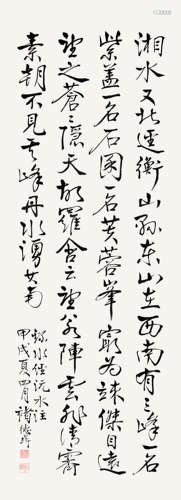 湘水又北逕衡山縣東山在西南有三峰一名
紫蓋一名石囷一名芙蓉峯最為竦傑自遠
望之蒼蒼隱天故羅含云望若陣雲非清霽
素朝不見其峰丹水湧其南
水經沅水注
甲戌夏四月褚德彝